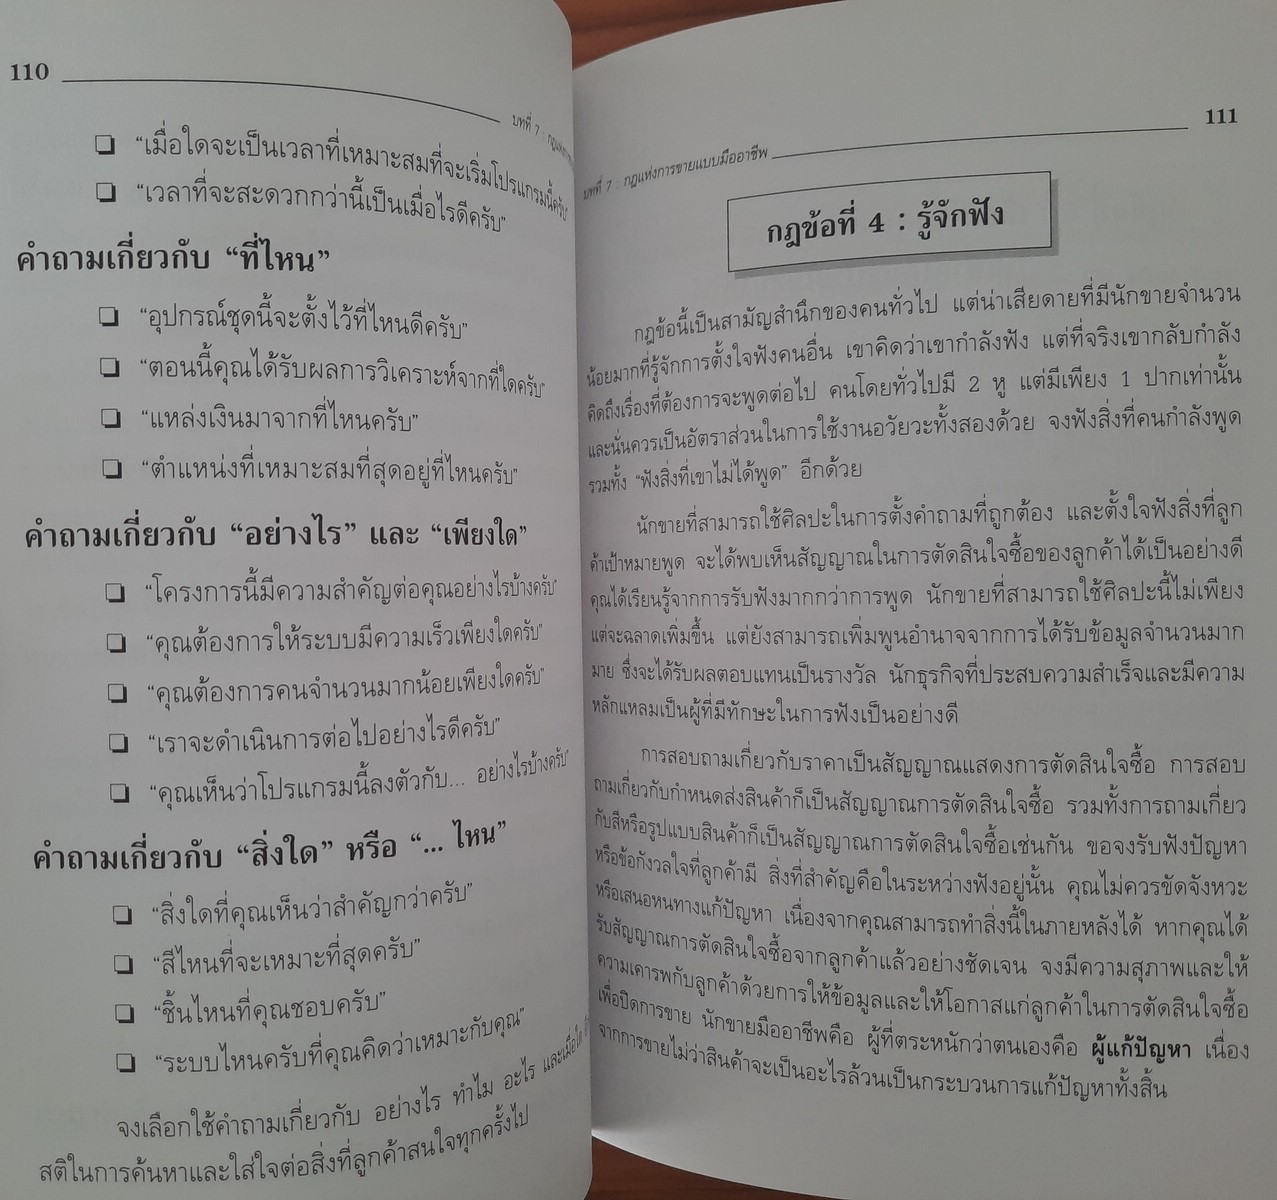 110
บทที่ 7 : กฎแห่งการ
❏ “เมื่อใดจะเป็นเวลาที่เหมาะสมที่จะเริ่มโปรแกรมนี้ครับ”
❏ “เวลาที่จะสะดวกกว่านี้เป็นเมื่อไรดีครับ”
คำถามเกี่ยวกับ “ที่ไหน”
❏ “อุปกรณ์ชุดนี้จะตั้งไว้ที่ไหนดีครับ”
❏ “ตอนนี้คุณได้รับผลการวิเคราะห์จากที่ใดครับ”
❏ “แหล่งเงินมาจากที่ไหนครับ”
❏ “ตำแหน่งที่เหมาะสมที่สุดอยู่ที่ไหนครับ”
คำถามเกี่ยวกับ “อย่างไร” และ “เพียงใด”
❏ “โครงการนี้มีความสำคัญต่อคุณอย่างไรบ้างครับ”
❏ “คุณต้องการให้ระบบมีความเร็วเพียงใดครับ”
❏ “คุณต้องการคนจำนวนมากน้อยเพียงใดครับ”
❏ “เราจะดำเนินการต่อไปอย่างไรดีครับ”
❏ “คุณเห็นว่าโปรแกรมนี้ลงตัวกับ... อย่างไรบ้างครับ”
คำถามเกี่ยวกับ “สิ่งใด” หรือ “... ไหน”
❏ “สิ่งใดที่คุณเห็นว่าสำคัญกว่าครับ”
❏ “สีไหนที่จะเหมาะที่สุดครับ”
❏ “ชิ้นไหนที่คุณชอบครับ”
❏ “ระบบไหนครับที่คุณคิดว่าเหมาะกับคุณ”
จงเลือกใช้คำถามเกี่ยวกับ อย่างไร ทำไม อะไร และเมื่อใด
สติในการค้นหาและใส่ใจต่อสิ่งที่ลูกค้าสนใจทุกครั้งไป
111
บทที่ 7 : กฎแห่งการขายแบบมืออาชีพ
กฎข้อที่ 4 : รู้จักฟัง
กฎข้อนี้เป็นสามัญสำนึกของคนทั่วไป แต่น่าเสียดายที่มีนักขายจำนวน
น้อยมากที่รู้จักการตั้งใจฟังคนอื่น เขาคิดว่าเขากำลังฟัง แต่ที่จริงเขากลับกำลัง
คิดถึงเรื่องที่ต้องการจะพูดต่อไป คนโดยทั่วไปมี 2 หู แต่มีเพียง 1 ปากเท่านั้น
และนั่นควรเป็นอัตราส่วนในการใช้งานอวัยวะทั้งสองด้วย จงฟังสิ่งที่คนกำลังพูด
รวมทั้ง “ฟังสิ่งที่เขาไม่ได้พูด” อีกด้วย
นักขายที่สามารถใช้ศิลปะในการตั้งคำถามที่ถูกต้อง และตั้งใจฟังสิ่งที่ลูก
ค้าเป้าหมายพูด จะได้พบเห็นสัญญาณในการตัดสินใจซื้อของลูกค้าได้เป็นอย่างดี
คุณได้เรียนรู้จากการรับฟังมากกว่าการพูด นักขายที่สามารถใช้ศิลปะนี้ไม่เพียง
แต่จะฉลาดเพิ่มขึ้น แต่ยังสามารถเพิ่มพูนอำนาจจากการได้รับข้อมูลจำนวนมาก
มาย ซึ่งจะได้รับผลตอบแทนเป็นรางวัล นักธุรกิจที่ประสบความสำเร็จและมีความ
หลักแหลมเป็นผู้ที่มีทักษะในการฟังเป็นอย่างดี
การสอบถามเกี่ยวกับราคาเป็นสัญญาณแสดงการตัดสินใจซื้อ การสอบ
ถามเกี่ยวกับกำหนดส่งสินค้าก็เป็นสัญญาณการตัดสินใจซื้อ รวมทั้งการถามเกี่ยว
กับสีหรือรูปแบบสินค้าก็เป็นสัญญาณการตัดสินใจซื้อเช่นกัน ขอจงรับฟังปัญหา
หรือข้อกังวลใจที่ลูกค้ามี สิ่งที่สำคัญคือในระหว่างฟังอยู่นั้น คุณไม่ควรขัดจังหวะ
หรือเสนอหนทางแก้ปัญหา เนื่องจากคุณสามารถทำสิ่งนี้ในภายหลังได้ หากคุณได้
รับสัญญาณการตัดสินใจซื้อจากลูกค้าแล้วอย่างชัดเจน จงมีความสุภาพและให้
ความเคารพกับลูกค้าด้วยการให้ข้อมูลและให้โอกาสแก่ลูกค้าในการตัดสินใจซื้อ
เพื่อปิดการขาย นักขายมืออาชีพคือ ผู้ที่ตระหนักว่าตนเองคือ ผู้แก้ปัญหา เนื่อง
จากการขายไม่ว่าสินค้าจะเป็นอะไรล้วนเป็นกระบวนการแก้ปัญหาทั้งสิ้น